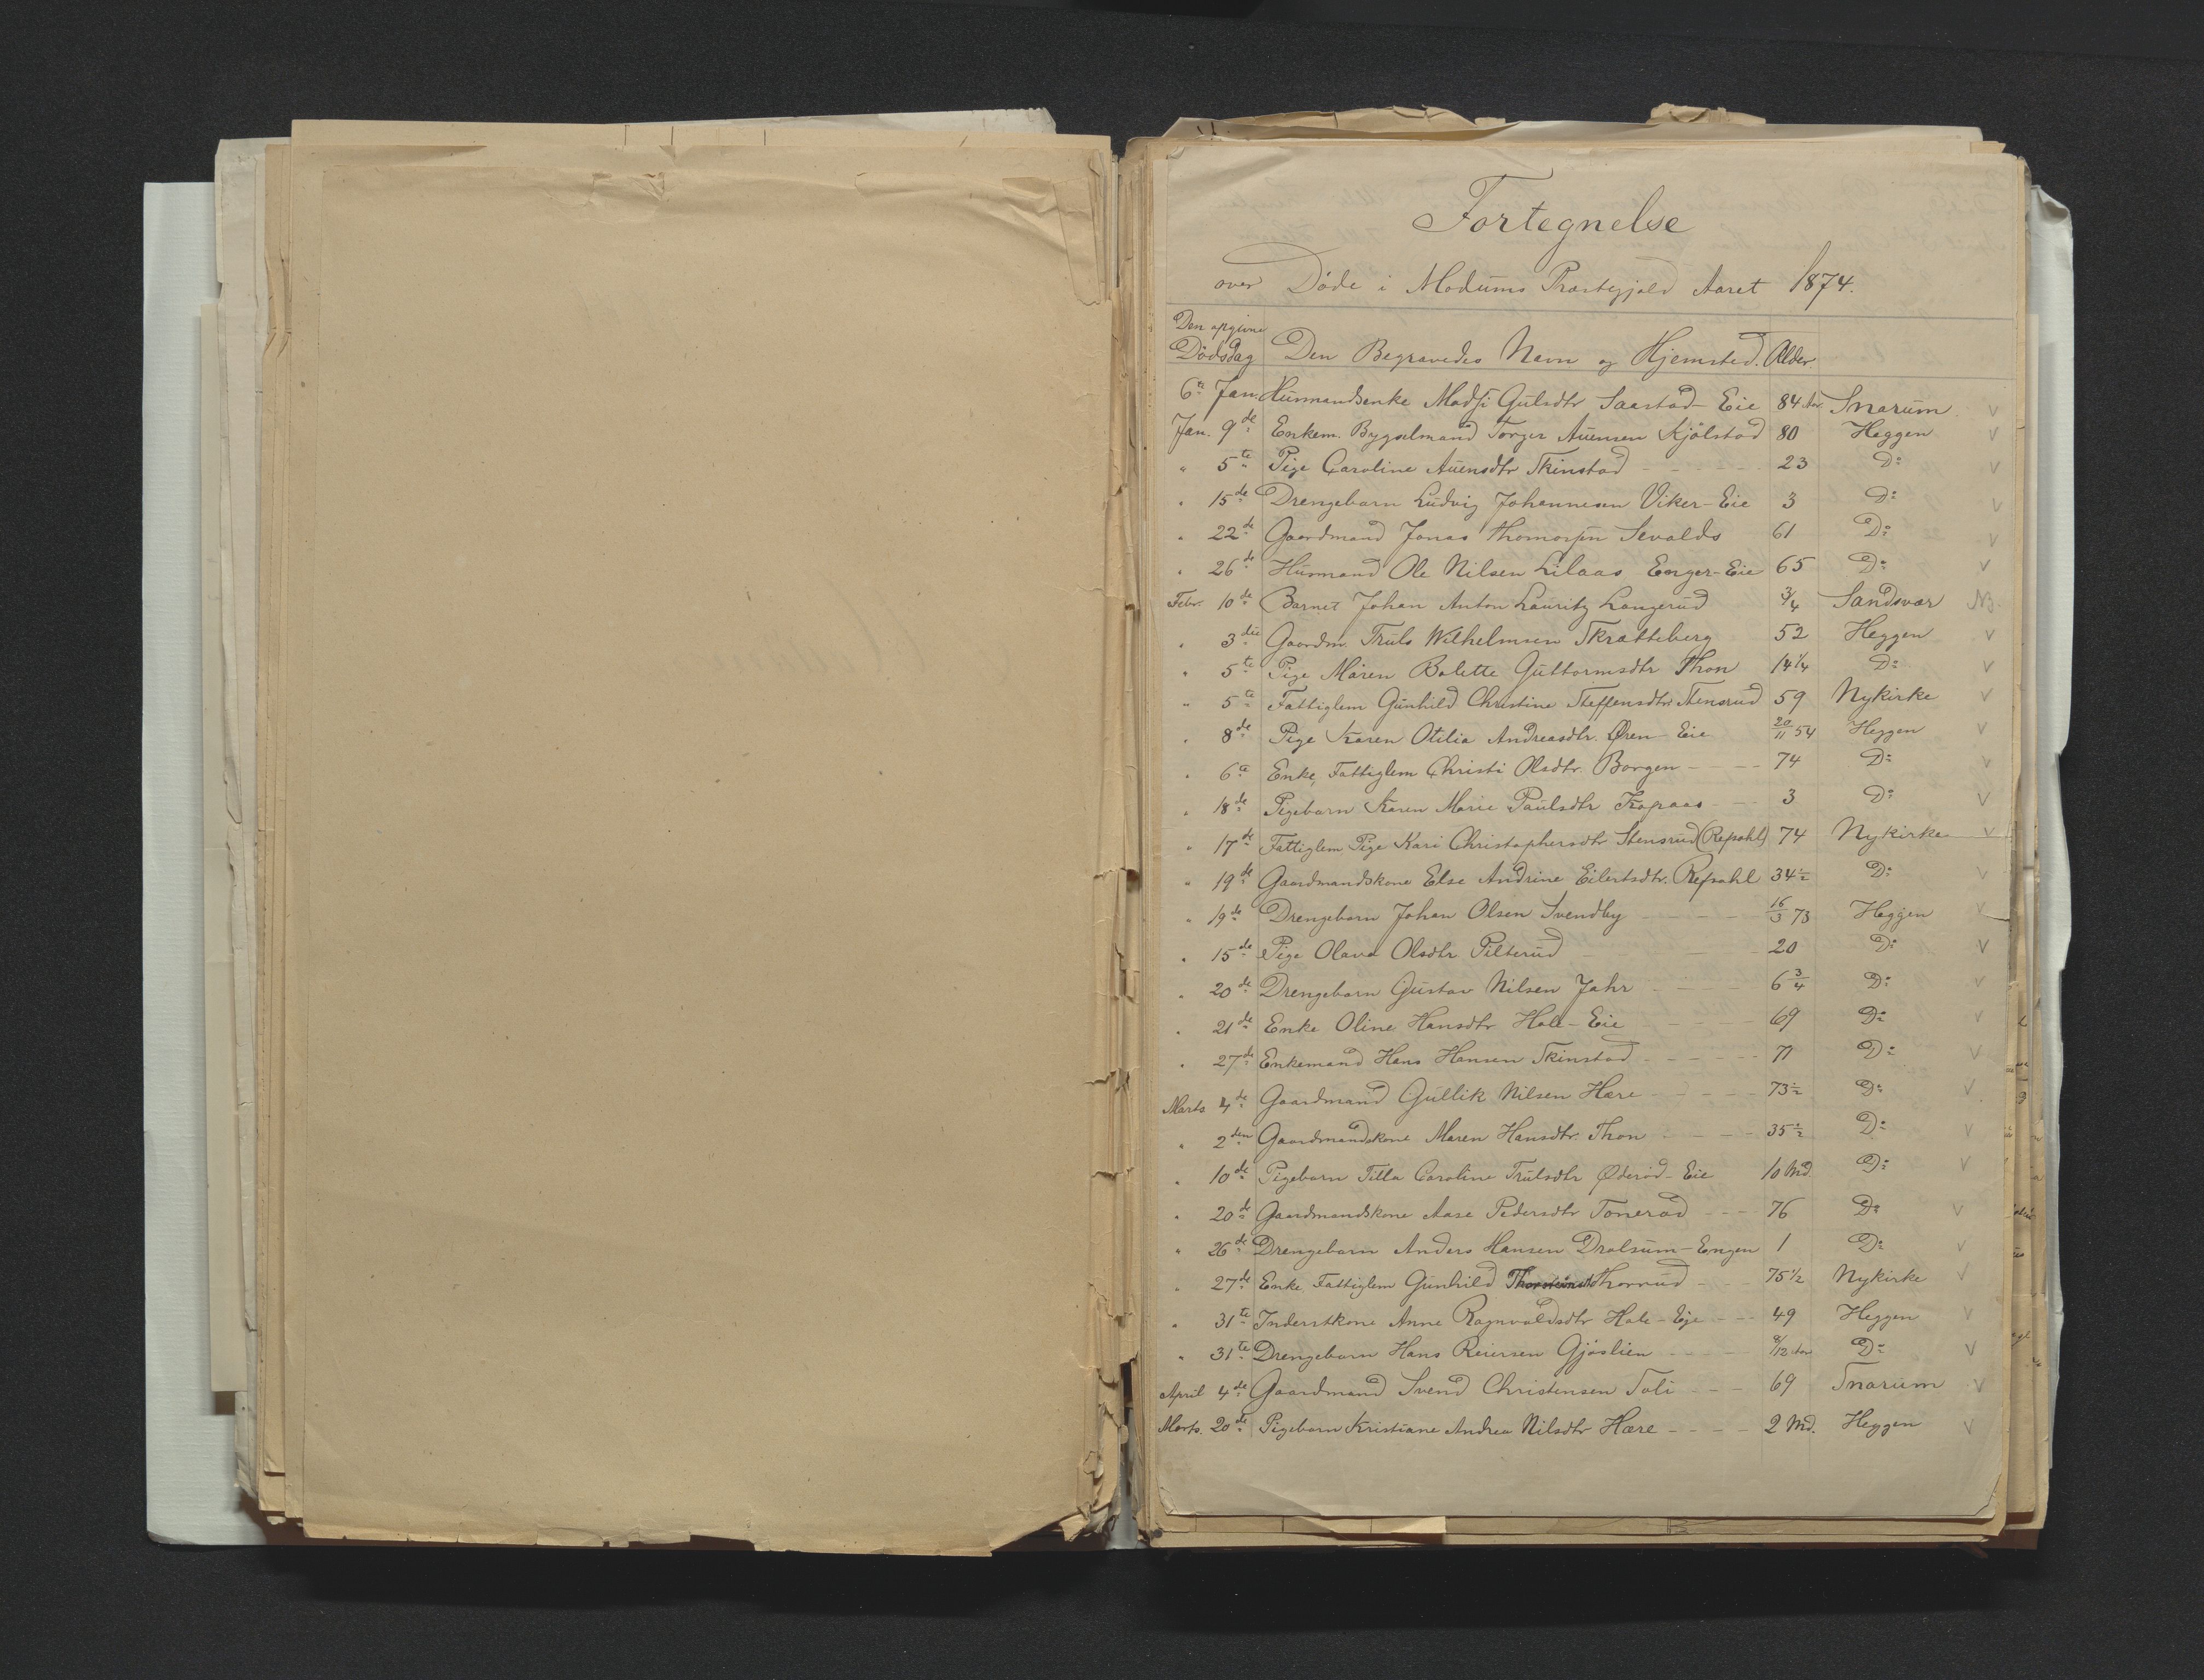 Fortegnelse
over Døde i Modums Præstegjeld Aaret 1874.
Den opgivne
Dødsdag Den Begravedes Navn og Hjemsted. Alder.
6te Jan. Husmandsenke Madsi Gulsdtr Saastad-Eie 84 Aar. Snarum v
Jan. 9de Enkem. Bygselmand Torger Auensen Kjölstad 80 Heggen v
" 5te Pige Caroline Auensdtr Skinstad - - - - 23 Do v
" 15de Drengebarn Ludvig Johannesen Viker-Eie 3 Do v
" 22de Gaardmand Jonas Thomasen Sevalds 61 Do v
" 26de Husmand Ole Nilsen Lilaas Enger-Eie 65 Do v
Febr. 10de Barnet Johan Anton Lauritz Langerud 3/4 Sandsvær NB.
" 3die Gaardm. Truls Wilhelmsen Skratteberg 52 Heggen v
" 5te Pige Maren Bolette Guttormsdtr Thon 14 1/4 Do v
" 5te Fattiglem Gunhild Christine Steffensdtr Stensrud 59 Nykirke v
" 8de Pige Karen Otilia Andreasdtr. Øren-Eie 20/11 54 Heggen v
" 6te Enke, Fattiglem Christi Olsdtr. Borgen - - - 74 Do v
" 18de Pigebarn Karen Marie Paulsdtr Kopaas - - 3 Do v
" 17de Fattiglem Pige Kari Christophersdtr Stensrud (Refsahl) 74 Nykirke v
" 19de Gaardmandskone Else Andrine Eilertsdtr. Refsahl 34 1/2 Do v
" 19de Drengebarn Johan Olsen Svendby - - - - 16/3 73 Heggen v
" 15de Pige Olava Olsdtr Pilterud - - - 20 Do v
" 20de Drengebarn Gustav Nilsen Jahr - - - - 6 3/4 Do v
" 21de Enke Oline Hansdtr Hale-Eie - - - 69 Do v
" 27de Enkemand Hans Hansen Skinstad - - - - - 71 Do v
Marts 4de Gaardmand Gullik Nilsen Hære - - - - - 73 1/2 Do v
" 2den Gaardmandskone Maren Hansdtr. Thon - - - - 35 1/2 Do v
" 10de Pigebarn Tilla Caroline Trulsdtr Øderud-Eie 10 Md. Do v
" 20de Gaardmandskone Aase Pedersdtr Tonerød - - - 76 Do v
" 26de Drengebarn Anders Hansen Drolsum-Engen 1 Do v
" 27de Enke Fattiglem Gunhild Thorrud - - - 75 1/2 Nykirke v
" 31te Inderstkone Anne Ragnvaldsdtr Hale-Eje - - - 49 Heggen v
" 31te Drengebarn Hans Reiersen Gjöslien - - - - 9/12 Aar Do v
April 4de Gaardmand Svend Christensen Toli - - - 69 Snarum v
Marts. 20de Pigebarn Kristiane Andrea Nilsdtr Hære - - - - 2 Md. Heggen v